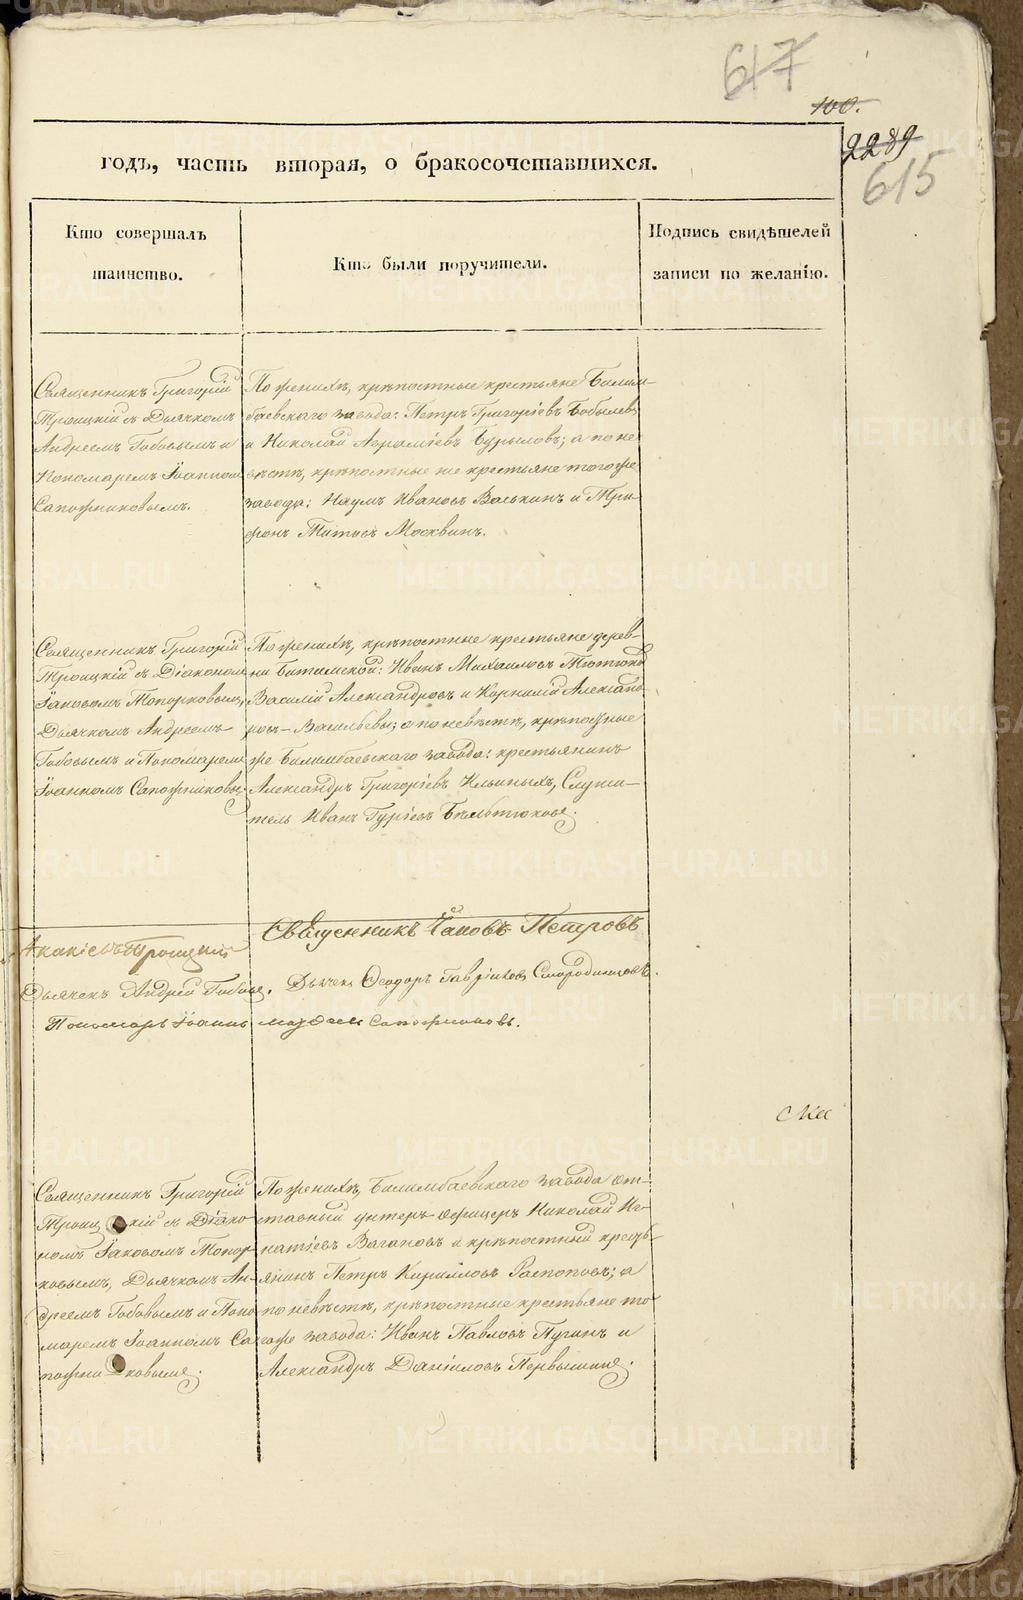 617
100.
2289
615
годъ, часть вторая, о бракосочетавшихся.
Кто совершалъ
таинство.
Кто были поручители.
Подпись свидѣтелей
записи по желанію.
Священникъ Григорій
Троицкій съ Дьячкомъ
Андреемъ Гобовымъ и
Пономаремъ Іоанном
Сапожниковымъ.
По женихѣ, крѣпостные крестьяне Билим-
баевскаго завода: Петръ Григоріевъ Бобылевъ
и Николай Аврамовъ Бурыловъ; а по не
вѣстѣ, крѣпостные же крестьяне того же
завода: Наумъ Ивановъ Васькинъ и Три-
фонъ Титовъ Москвинъ.
Священникъ Григорій
Троицкій съ Діакономъ
Іаковомъ Топорковымъ,
Дьячкомъ Андреемъ
Гобовымъ и Пономаремъ
Іоанномъ Сапожниковы
По женихѣ, крѣпостные крестьяне дерев-
ни Битимской: Иванъ Михайловъ
Василій Александровъ и Корнилій Алексан-
ровъ Васильевы; а по невѣстѣ, крѣпостные
же Билимбаевскаго завода: крестьянинъ
Александръ Григоріевъ Ильиныхъ, Служи-
тель Иванъ Гуріевъ
Священникъ Іаковъ Петровъ
Акакіевъ Троицкій
Дьячекъ Андрей Гобовъ. Дьячекъ Ѳеодоръ Гавриловъ Смородинцовъ.
Пономарь Іоаннъ Сапожниковъ.
Священникъ Григорій
Троицкій съ Діако
номъ Іаковомъ Топор
ковымъ, Дьячкомъ Ан-
дреемъ Гобовымъ и Поно
маремъ Іоанномъ Са
пожниковымъ.
По женихѣ, Билимбаевскаго завода от-
ставный унтеръ офицеръ Николай Иг-
натіевъ Вагановъ и крѣпостный кресть-
янинъ Петръ Кирилловъ Распоповъ; а
по невѣстѣ, крѣпостные крестьяне то
гоже завода: Иванъ Павловъ Пугинъ и
Александръ Даніиловъ Первышинъ.